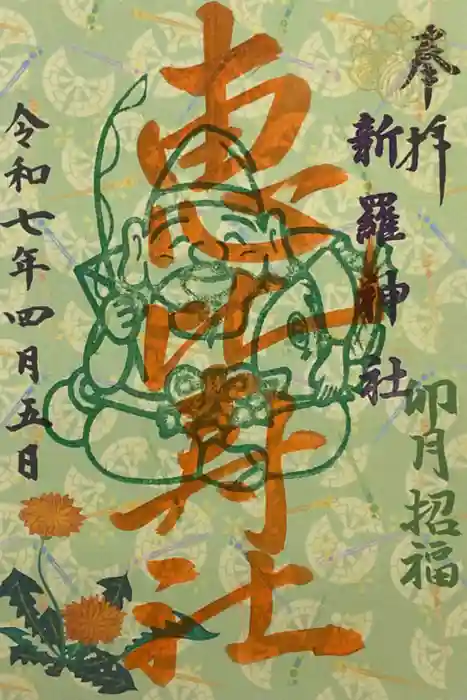 奉拝
新羅神社
恵比寿社
卯月招福
令和七年四月五日